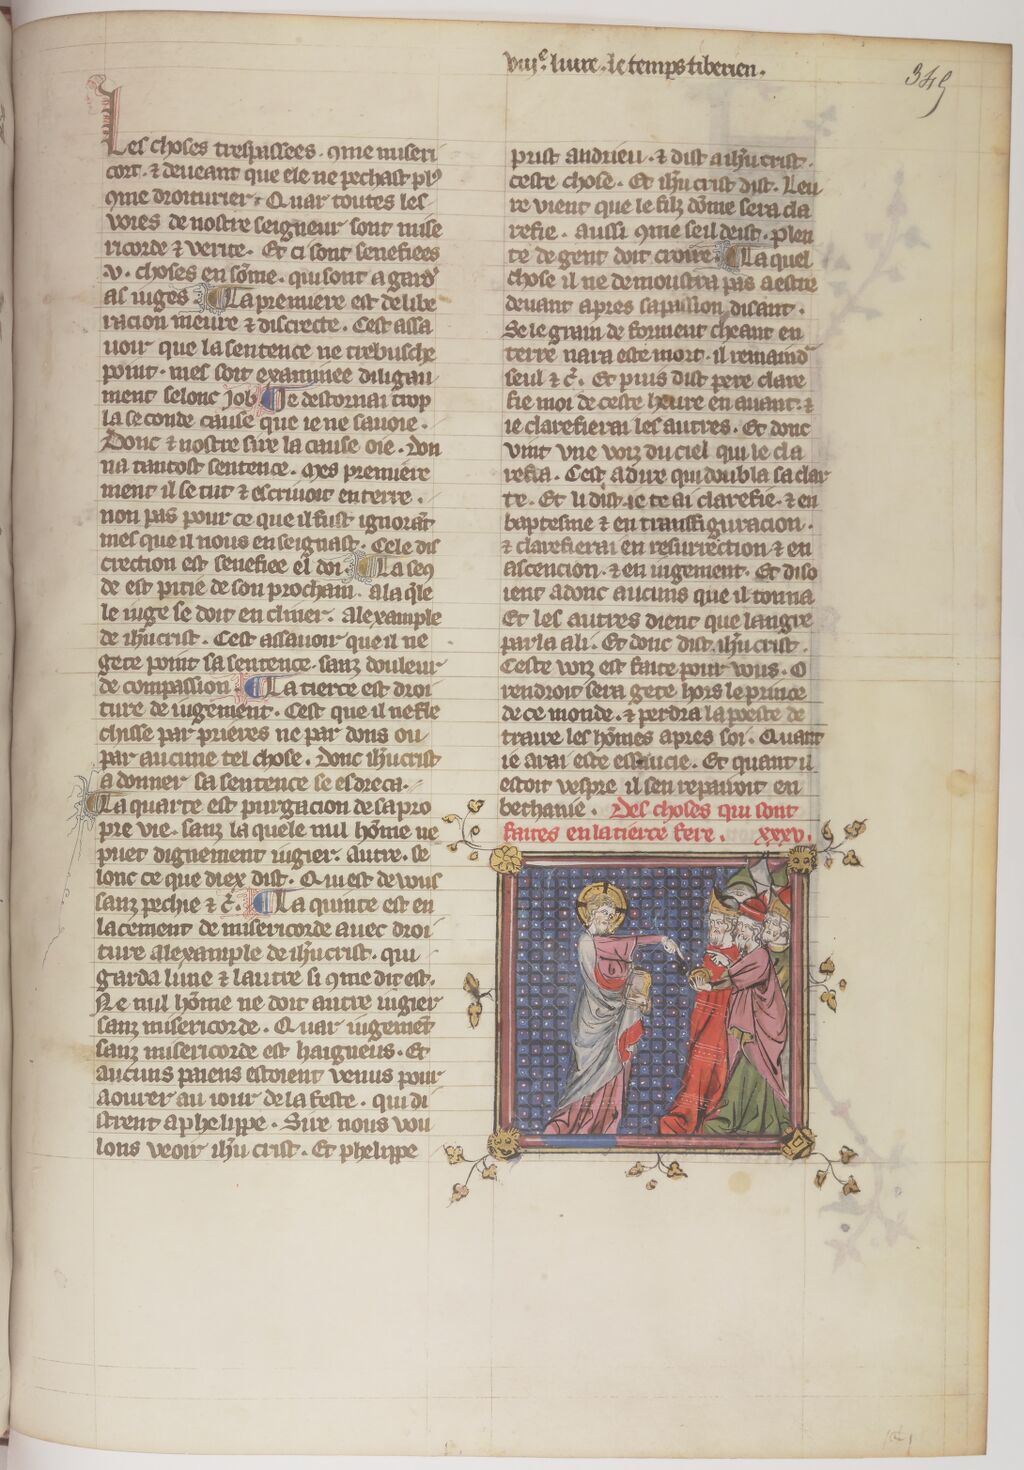 viije. liure. le temps tiberien.
349
Les choses trespassees. 9me miseri
cort. ⁊ deueant que ele ne pechast pl9
9me droiturier. Quar toutes les
voies de nostre seigneur sont mise
ricorde ⁊ verite. Et ci sont senefiees
.v. choses en sõme. qui sont a gard'
as iuges La premiere est de libe
racion meure ⁊ discrecte. Cest assa
uoir que la sentence ne trebusche
point. mes soit examinee diligau
ment selonc Job Je destornai trop
la seconde cause que ie ne sauoie.
Donc ⁊ nostre sire la cause oie. don
na tantost sentence. Mes premiere
ment il se tut ⁊ escriuoit en terre.
non pas pour ce que il fust ignorãt
mes que il nous enseignast. Cele dis
crection est senefiee el doi. La seg9
de est pitie de son procham. a la qle
le iuge se doit encliner. Alexample
de ihũcrist. Cest assauoir que il ne
gete point sa sentence. sanz douleur
de compassion. La tierce est droi
ture de iugement. Cest que il ne fle
chisse par prieres ne par dons ou
par aucune tel chose. Donc ihũcrist
a donner sa sentence se esdreca.
La quarte est purgacion de sa pro
pre vie. sanz la quele nul hõme ne
puet dignement iugier autre. se
lonc ce que diex dist. Qui est de vous
sanz pechie ⁊ c̃. La quinte est en
lacement de misericorde auec droi
ture alexample de ihũcrist. qui
garda lune ⁊ lautre si 9me dit est.
Ne nul hõme ne doit autre iugier
sanz misericorde. Quar iugemẽt
sanz misericorde est haigneus. Et
aucuns paiens estoient venus pour
aourer au iour de la feste. qui di
strent a phelippe. Sire nous vou
lons veoir ihũ crist. Et phelippe
prist andrieu. ⁊ dist a ihũ crist.
ceste chose. Et ihũ crist dist. Leu
re vient que le filz dõme sera cla
refie. aussi 9me seil deist. plen
te de gent doit croire La quel
chose il ne demoustra pas a estre
deuant apres sa passion disant.
Se le grain de forment cheant en
terre nara este mort. il remaind
seul ⁊ c̃. Et puis dist pere clare
fie moi de ceste heure en auant. ⁊
ie clarefierai les autres. Et donc
vint vne voiz du ciel qui le cla
refia. Cest a dire qui doubla sa clar
te. Et li dist. ie te ai clarefie. ⁊ en
baptesme ⁊ en transfiguracion.
⁊ clarefierai en resurrection ⁊ en
ascencion. ⁊ en iugement. Et diso
ient adonc aucuns que il tonna
Et les autres dient que langre
parla a li. Et donc dist. ihũ crist.
Ceste voiz est faite pour vous. O
rendroit sera gete hors le prince
de ce monde. ⁊ perdra la poeste de
traire les hõmes apres soi. Quant
ie arai este essaucie. Et quant il
estoit vespre il sen repairoit en
bethanie. Des choses qui sont
faites en la tierce fere. xxxv.